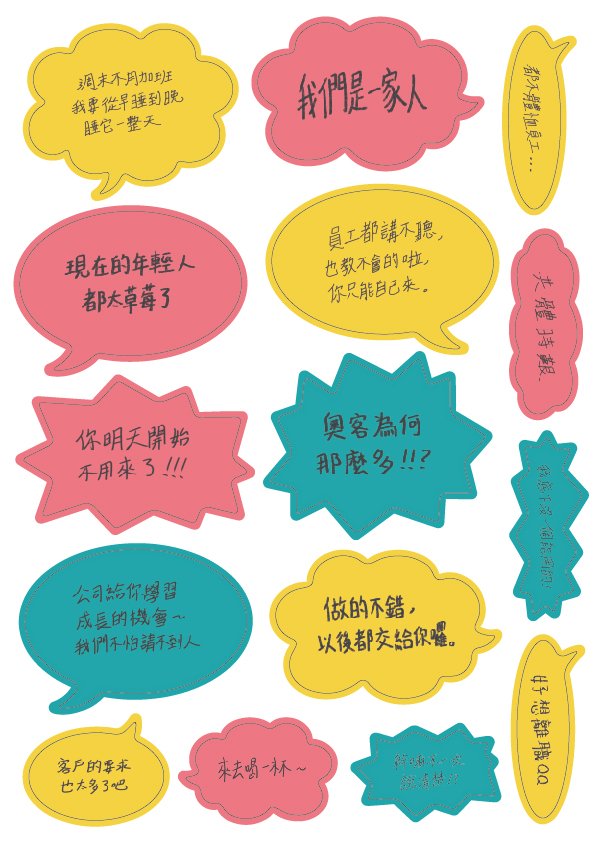 週末不用加班
我要從早睡到晚
睡它一整天
我們是一家人
都不體恤員工...
現在的年輕人
都太草莓了
員工都講不聽,
也教不會的啦,
你只能自己來。
共體時艱
你明天開始
不用來了!!!
奧客為何
那麼多!!?
公司給你學習
成長的機會~
我們不怕請不到人
做的不錯,
以後都交給你囉。
好想離職QQ
客戶的要求
也太多了吧
來去喝一杯~